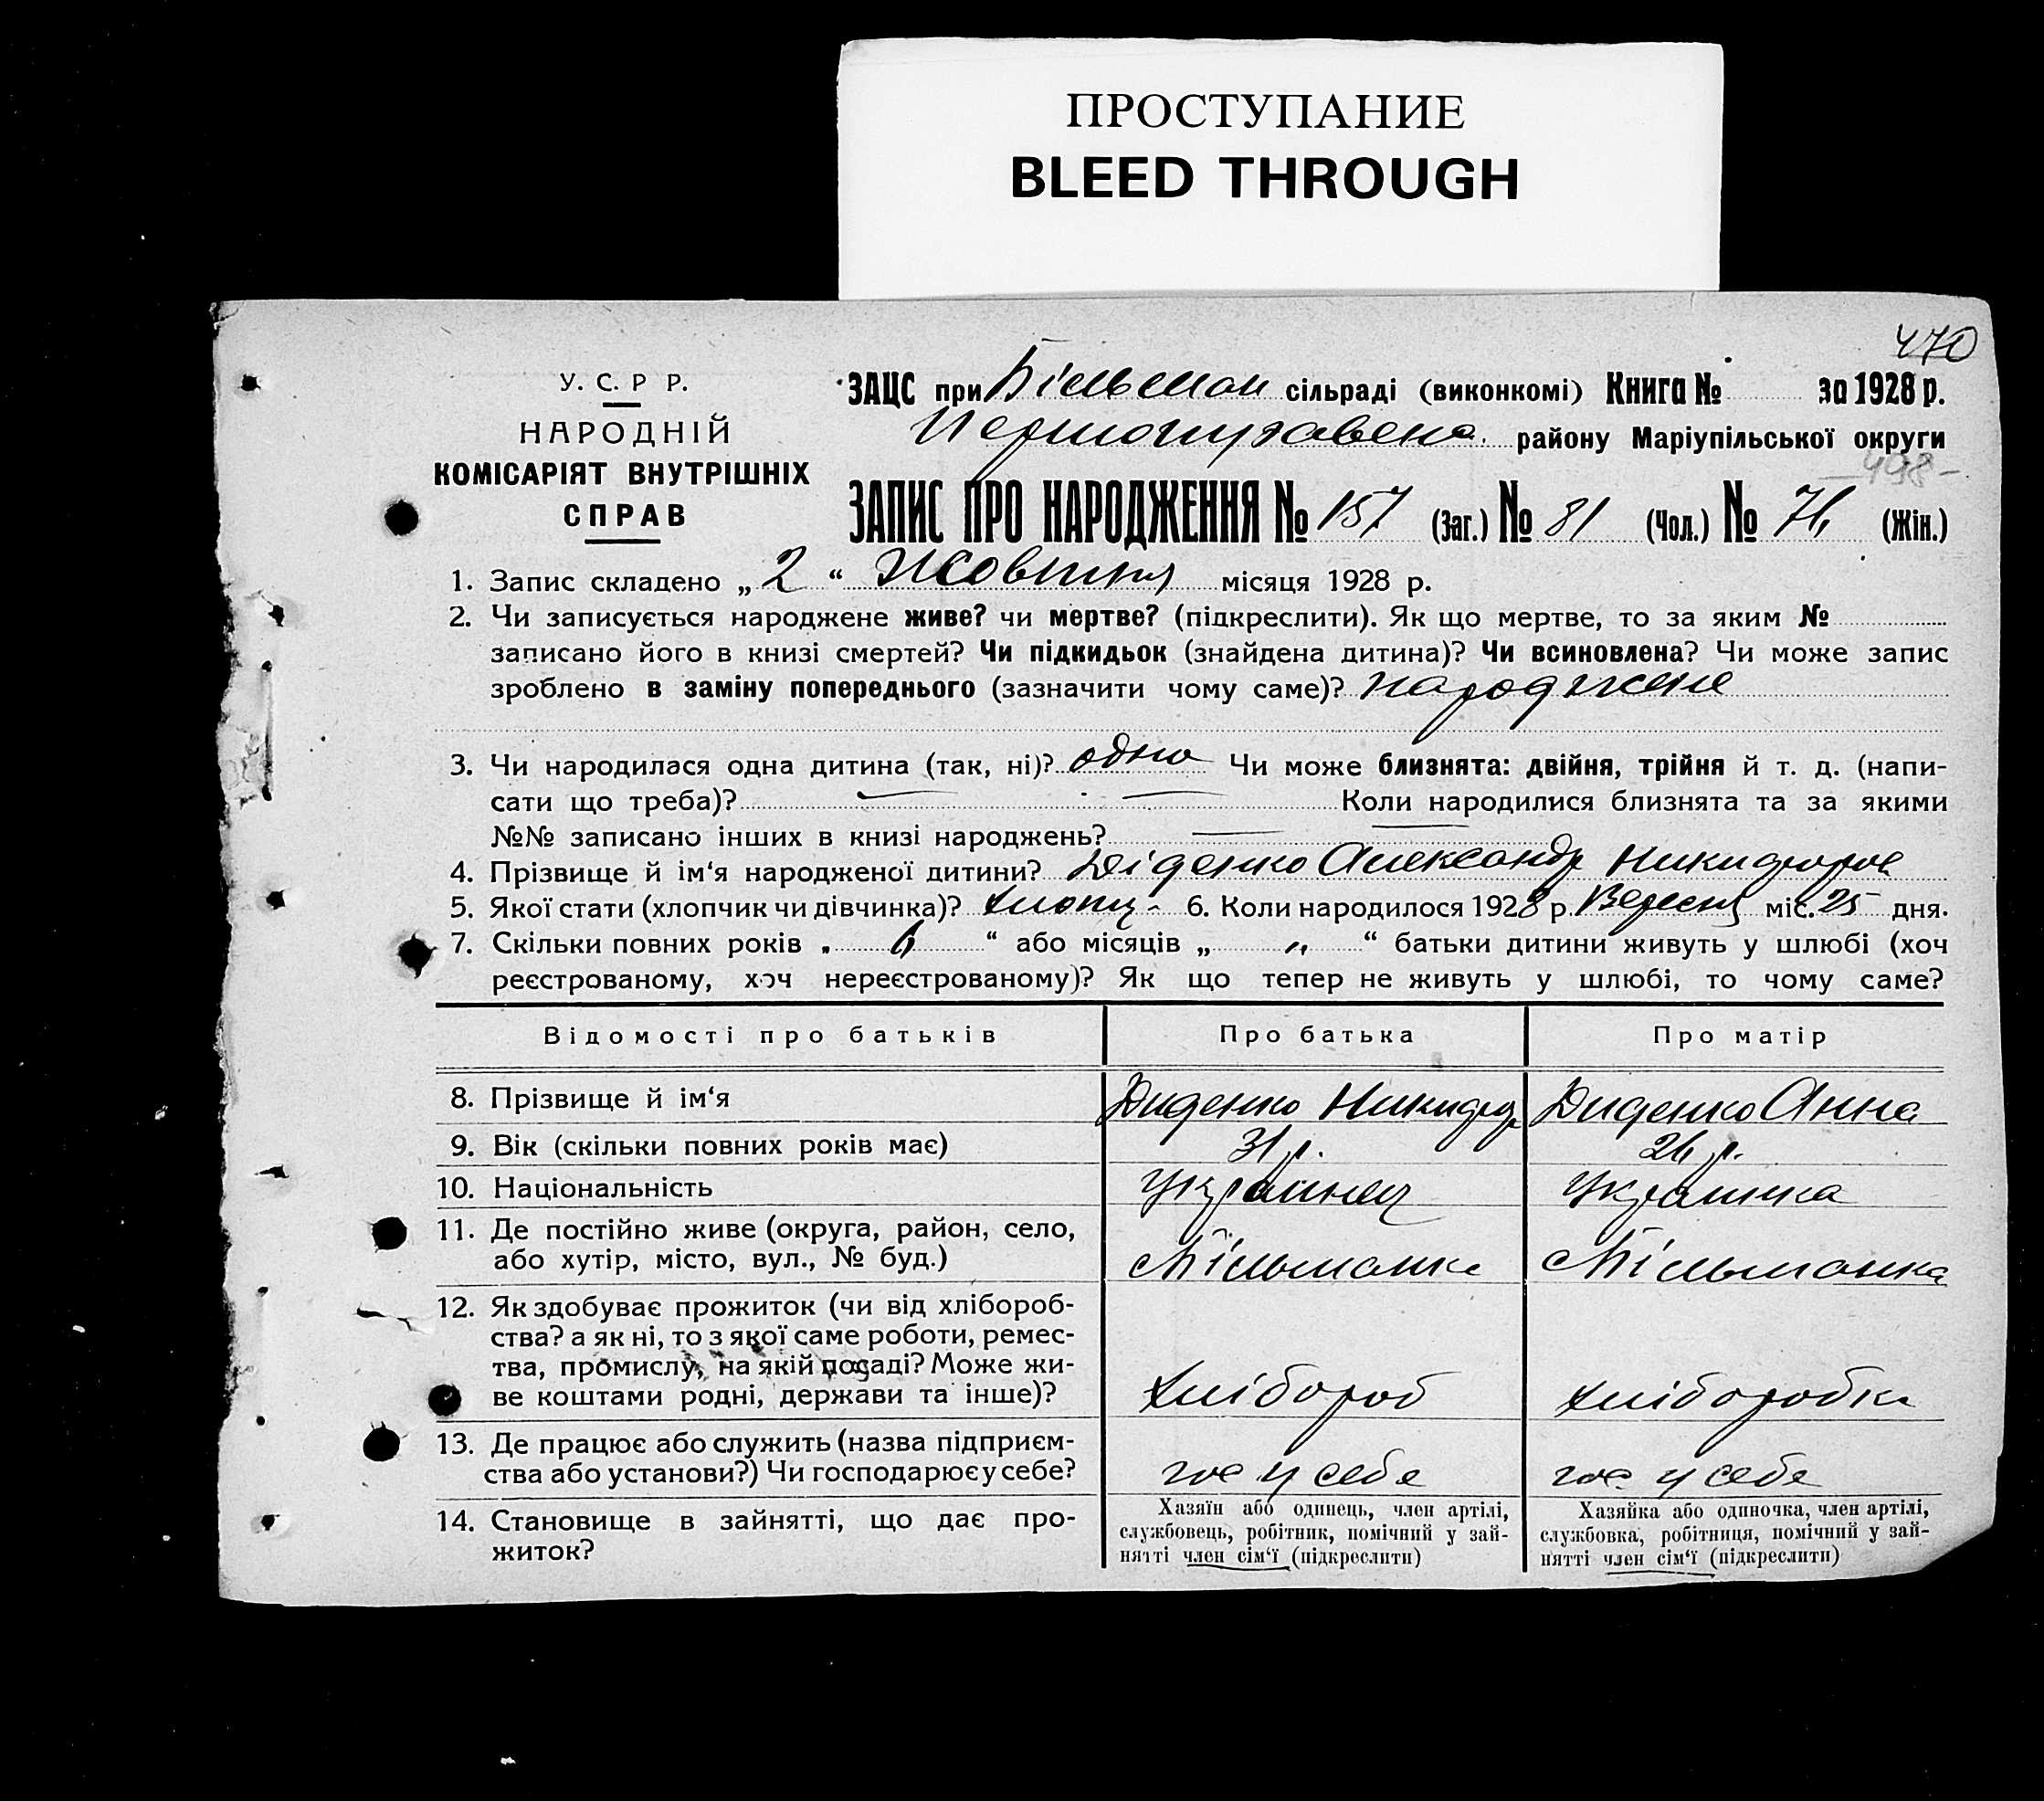 ПРОСТУПАНИЕ
BLEED THROUGH
470
У. С. Р Р.
НАРОДНІЙ
КОМІСАРІЯТ ВНУТРІШНІХ
СПРАВ
ЗАЦС при Більман сільраді (виконкомі) Книга № за 1928 р.
району Маріупільської округи
-498-
ЗАПИС ПРО НАРОДЖЕННЯ № 157 (Заг.) № 81 (Чол.) № 76 (Жін.)
1. Запис складено „ 2 “ Жовтня місяця 1928 р.
2. Чи записується народжене живе? чи мертве? (підкреслити). Як що мертве, то за яким №
записано його в книзі смертей? Чи підкидьок (знайдена дитина)? Чи всиновлена? Чи може запис
зроблено в заміну попереднього (зазначити чому саме)? народжене
3. Чи народилася одна дитина (так, ні)? одна Чи може близнята: двійня, трійня й т. д. (напи-
сати що треба)? Коли народилися близнята та за якими
№№ записано інших в книзі народжень?
4. Прізвище й ім‘я народженої дитини? Діденко Александр Никифоров
5. Якої стати (хлопчик чи дівчинка)? хлопц- 6. Коли народилося 1928 р. Вересня міс. 25 дня.
7. Скільки повних років „ 6 “ або місяців „ „ “ батьки дитини живуть у шлюбі (хоч
реєстрованому, хоч нереєстрованому)? Як що тепер не живуть у шлюбі, то чому саме?
Відомості про батьків Про батька Про матір
8. Прізвище й ім‘я Диденко Никифор Диденко Анна
9. Вік (скільки повних років має) 31 р. 26 р.
10. Національність Українец Украинка
11. Де постійно живе (округа, район, село,
або хутір, місто, вул., № буд.) Більманка Більманка
12. Як здобуває прожиток (чи від хлібороб-
ства? а як ні, то з якої саме роботи, ремес-
тва, промислу, на якій посаді? Може жи-
ве коштами родні, держави та інше)? хлібороб хліборобка
13. Де працює або служить (назва підприєм-
ства або установи?) Чи господарює у себе? гос у себе гос. у себе
14. Становище в зайнятті, що дає про-
житок?
Хазяїн або одинець, член артілі,
службовець, робітник, помічний у зай-
нятті член сім‘ї (підкреслити)
Хазяйка або одиночка, член артілі,
службовка, робітниця, помічний у зай-
нятті член сім‘ї (підкреслити)